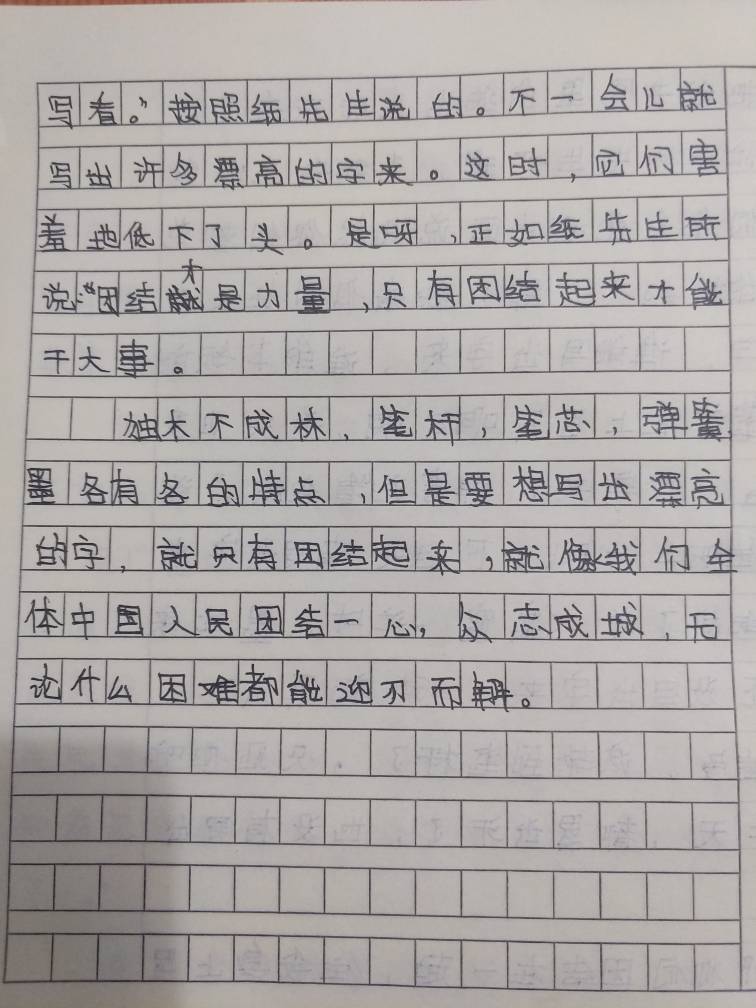 写看。”按照纸先生说的。不一会儿就
写出许多漂亮的字来。这时，它们害
羞地低下了头。是呀，正如纸先生所
说：“团结才是力量，只有团结起来才能
干大事。
独木不成林，笔杆，笔芯，弹簧
墨各有各的特点，但是要想写出漂亮
的字，就只有团结起来，就像我们全
体中国人民团结一心，众志成城，无
论什么困难都能迎刃而解。